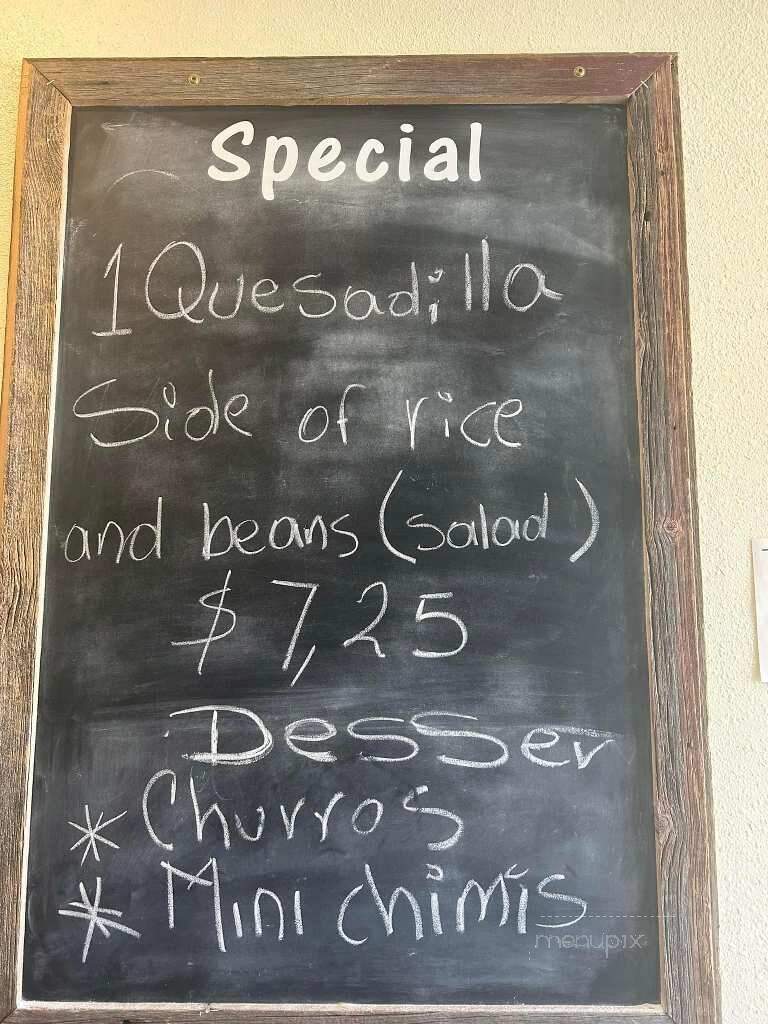 Special
1 Quesadilla
Side of rice
and beans (salad)
$7,25
Desser
* Churros
* Mini chimis
menupix